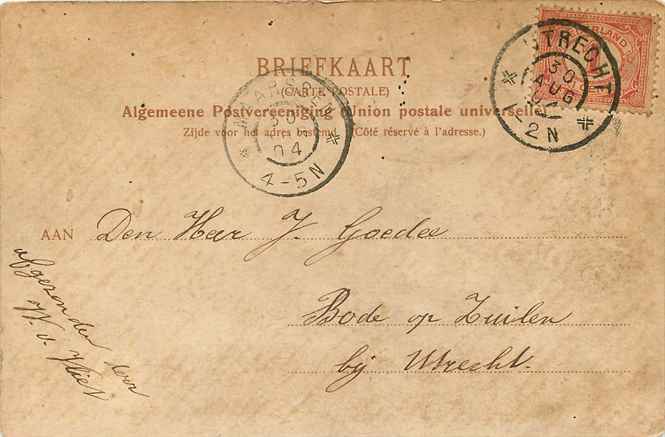 BRIEFKAART
(CARTE POSTALE)
Algemeene Postvereeniging (Union postale universelle)
Zijde voor het adres bestemd. (Côté réservé à l'adresse.)
UTRECHT
30
AUG
1-2N
30
04
4-5N
AAN Den Heer J. Goedee
Bode op Zuilen
bij Utrecht.
afgezonden door
W. v. Vliet